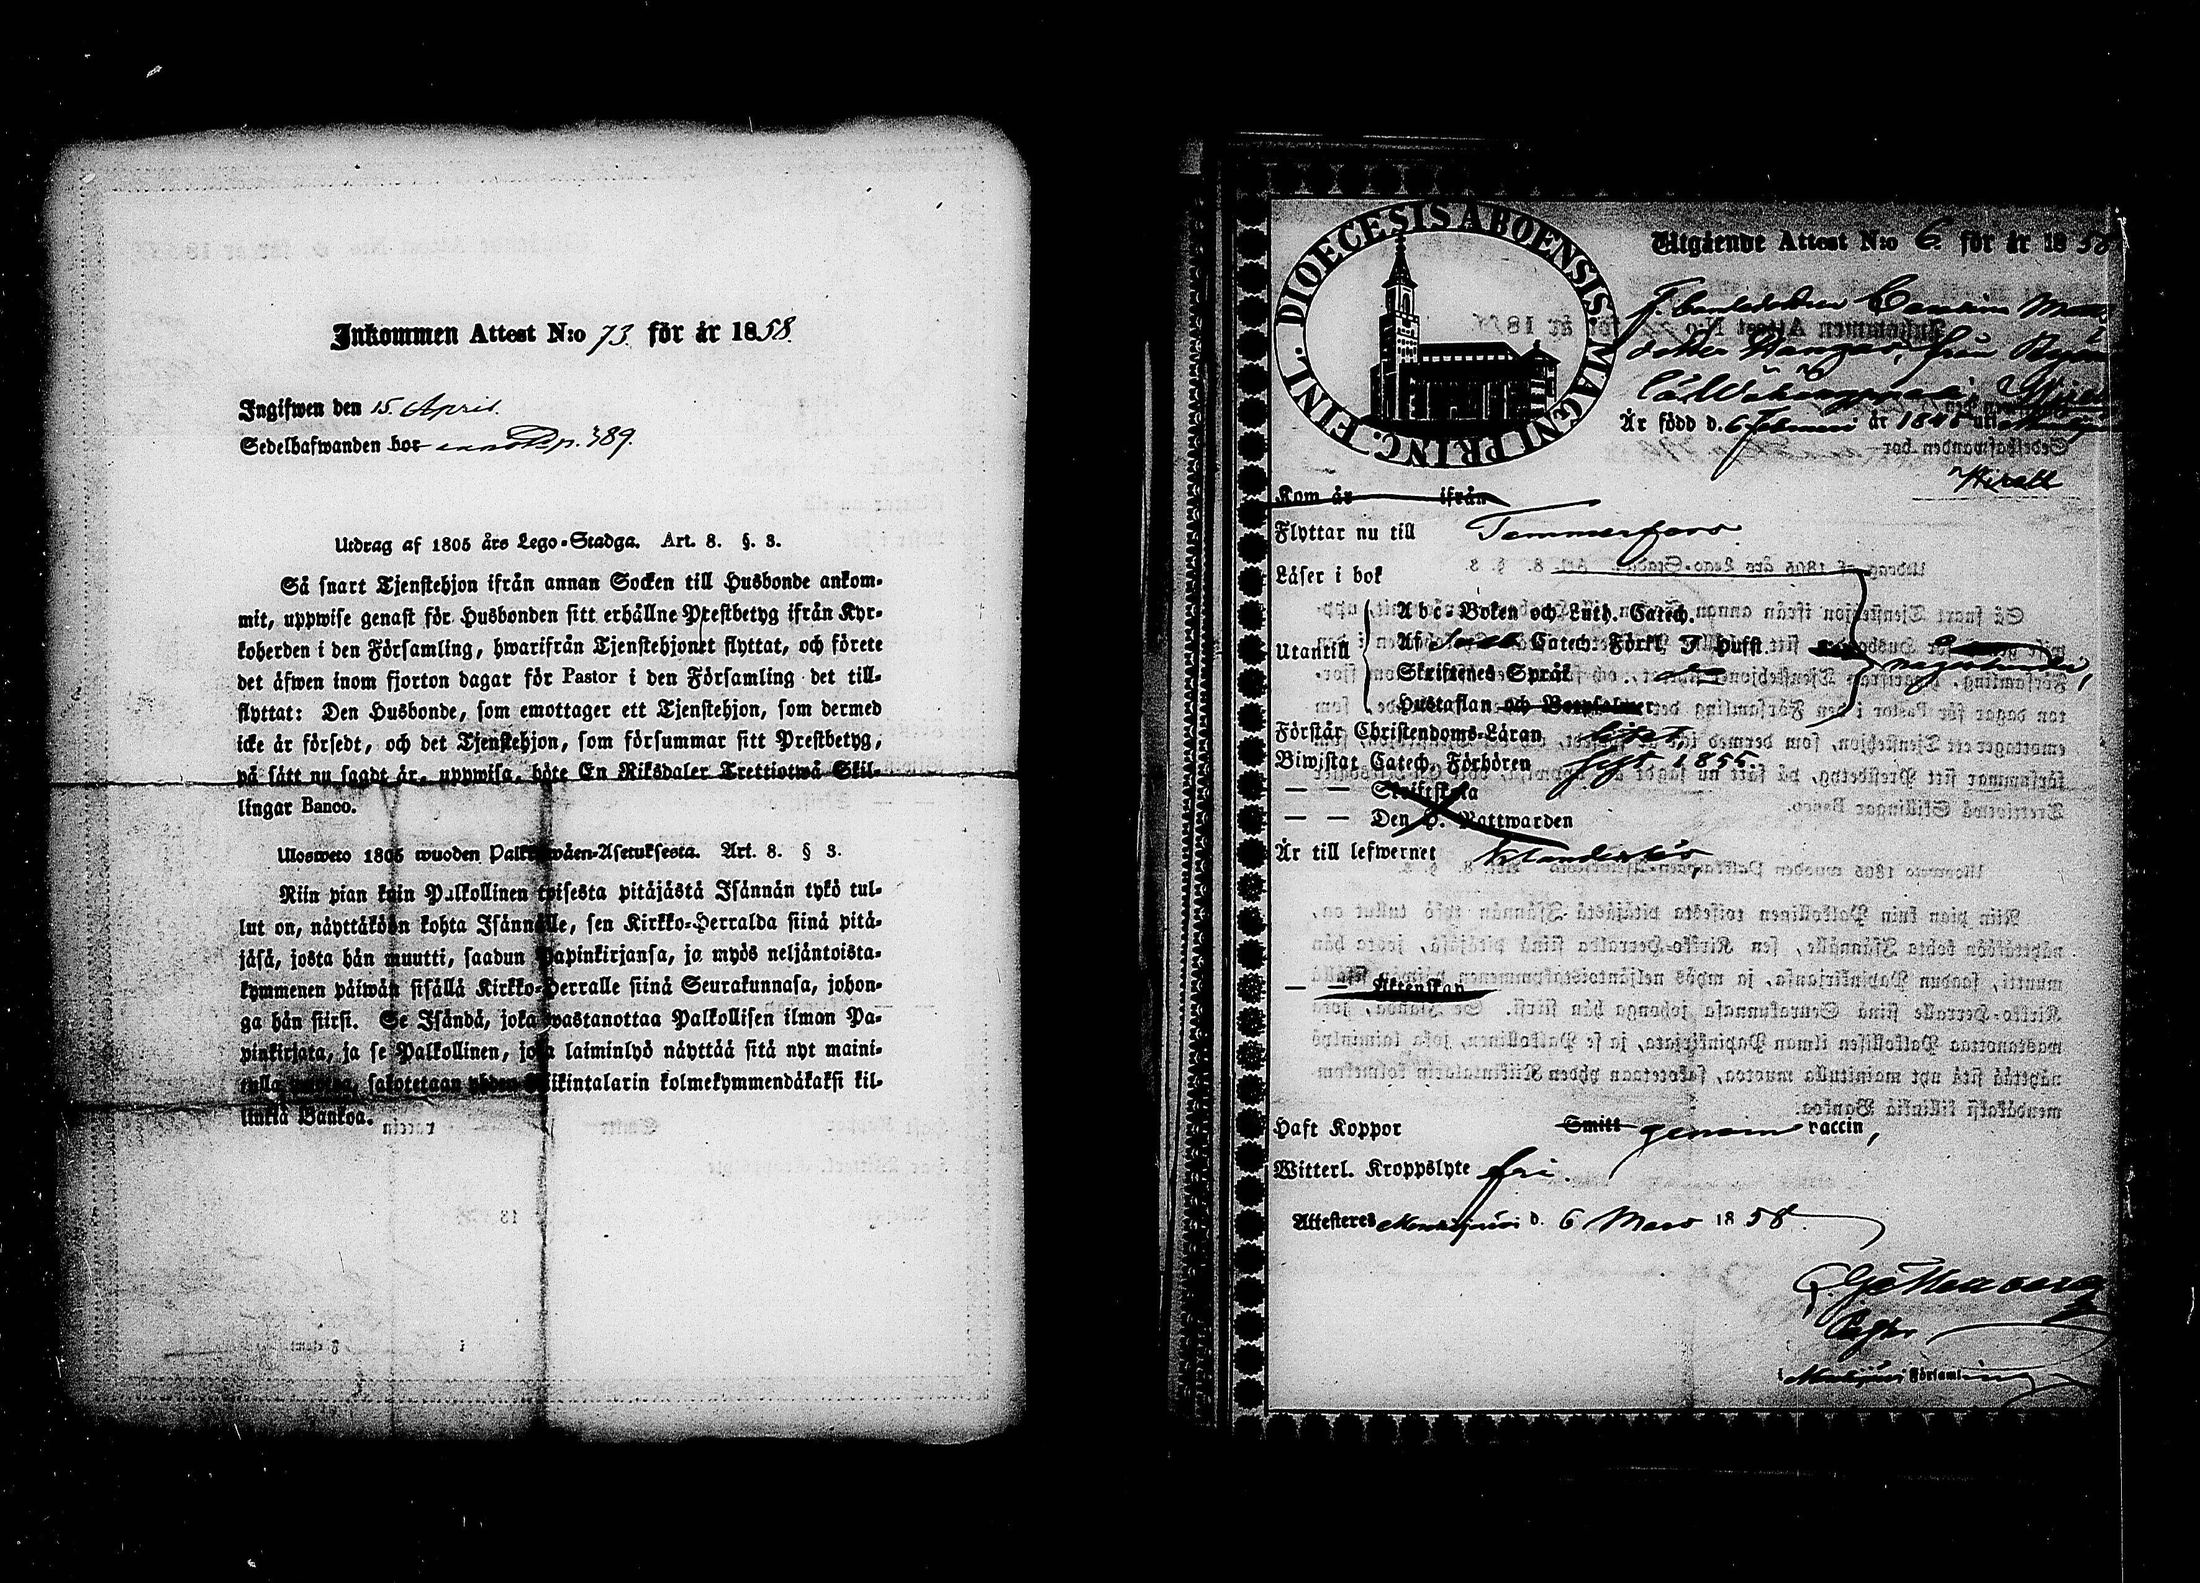 Inkommen Attest N:o 73. för år 1858.
Ingifwen den 15. April.
Sedelhafwanden bor p. 389.
Utdrag af 1805 års Lego-Stadga. Art. 8. §. 3.
Så snart Tjenstehjon ifrån annan Socken till Husbonde ankom-
mit, uppwise genast för Husbonden sitt erhållne Prestbetyg ifrån Kyr-
koherden i den Församling, hwarifrån Tjenstehjonet flyttat, och förete
det äfwen inom fjorton dagar för Pastor i den Församling det till-
flyttat: Den Husbonde, som emottager ett Tjenstehjon, som dermed
icke är försedt, och det Tjenstehjon, som försummar sitt Prestbetyg,
på sätt nu sagdt är, uppwisa, böte En Riksdaler Trettiotwå Skil-
lingar Banco.
Ulosweto 1805 wuoden Palkkawäen-Asetuksesta. Art. 8. § 3.
Niin pian kuin Palkollinen toisesta pitäjästä Isännän tykö tul-
lut on, näyttäköön kohta Isännälle, sen Kirkko-Herralda siinä pitä-
jäsä, josta hän muutti, saadun Papinkirjansa, ja myös neljäntoista-
kymmenen päiwän sisällä Kirkko-Herralle siinä Seurakunnasa, johon-
ga hän siirsi. Se Isändä, joka wastanottaa Palkollisen ilman Pa-
pinkirjata, ja se Palkollinen, joka laiminlyö näyttää sitä nyt maini-
tulla muotoa, sakotetaan yhden Riikintalarin kolmekymmendäkaksi kil-
linkiä Bankoa.
DIOECESIS ABOENSIS. MAGNI PRINC. FINL.
Utgående Attest N:o 6. för år 1858
från
Är född d. 6 Februari år
Kom år ifrån
Flyttar nu till Tammerfors.
Läser i bok
Utantill
Abc-Boken och Luth. Catech.
Af Catech. Förkl. J Hufst.
Skriftenes Språk
Hustaflan och Botpsalmer
Förstår Christendoms-Läran
Biwistat Catech. Förhören 1855.
— — Skriftskola
— — Den H. Nattwarden
Är till lefwernet klanderlös
— — Äktenskap
Haft Koppor Smitt genom vaccin,
Witterl. Kroppslyte fri.
Attesteras d. 6 Mars 1858.
i Församling